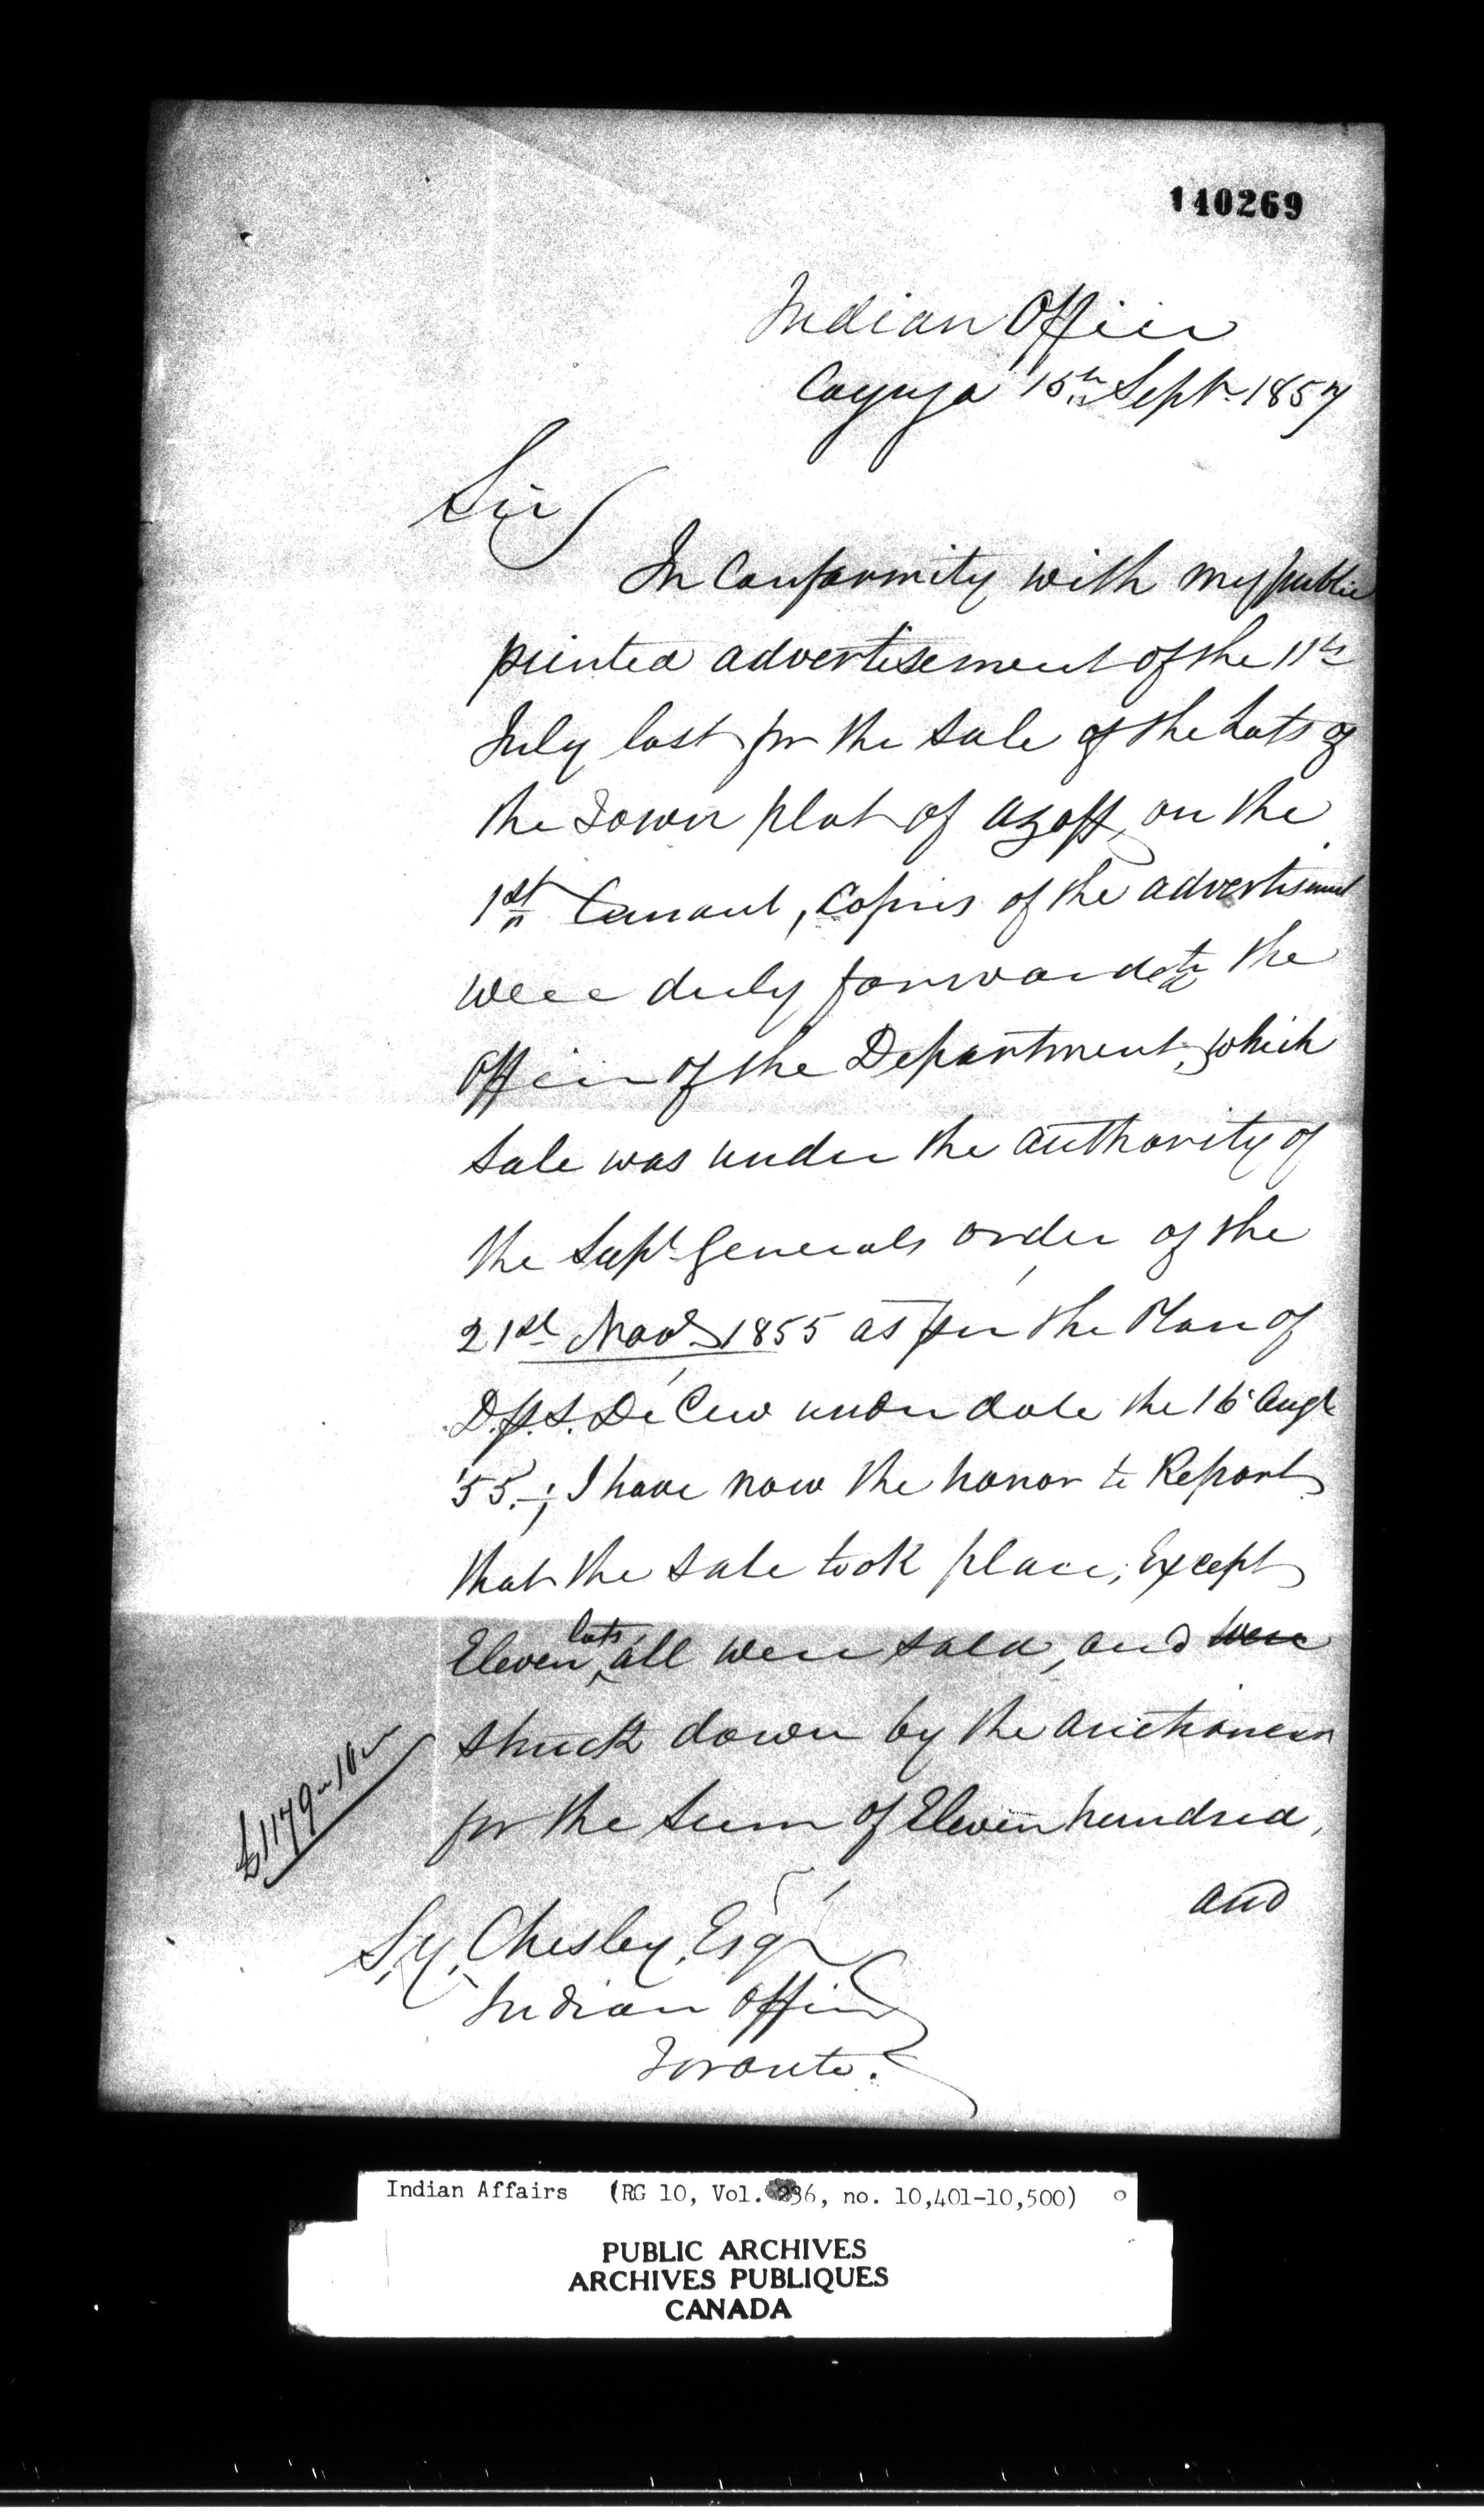 140269
Indian Office
Cayuga 15th Sept. 1857
Sir
In Conformity with my public
printed advertisement of the 11th
July last for the sale of the Lots of
the Town plat of Azoff, on the
1st Curraut, Copies of the advertisement
were duly forwarded to the
Office of the Department, which
sale was under the authority of
the Supt. Generals order of the
21st Novr. 1855 as per the Plan of
D.P.S. De Cew under date the 16 Augt
'55.; I have now the honor to Report
that the sale took place, Except
Eleven lots all were sold, and were
struck down by the Auctioneer
for the sum of Eleven hundred,
and
£1179"10"
S.Y. Chesley, Esqr
Indian Office
Toronto.
Indian Affairs (RG 10, Vol. 236, no. 10,401-10,500)
PUBLIC ARCHIVES
ARCHIVES PUBLIQUES
CANADA